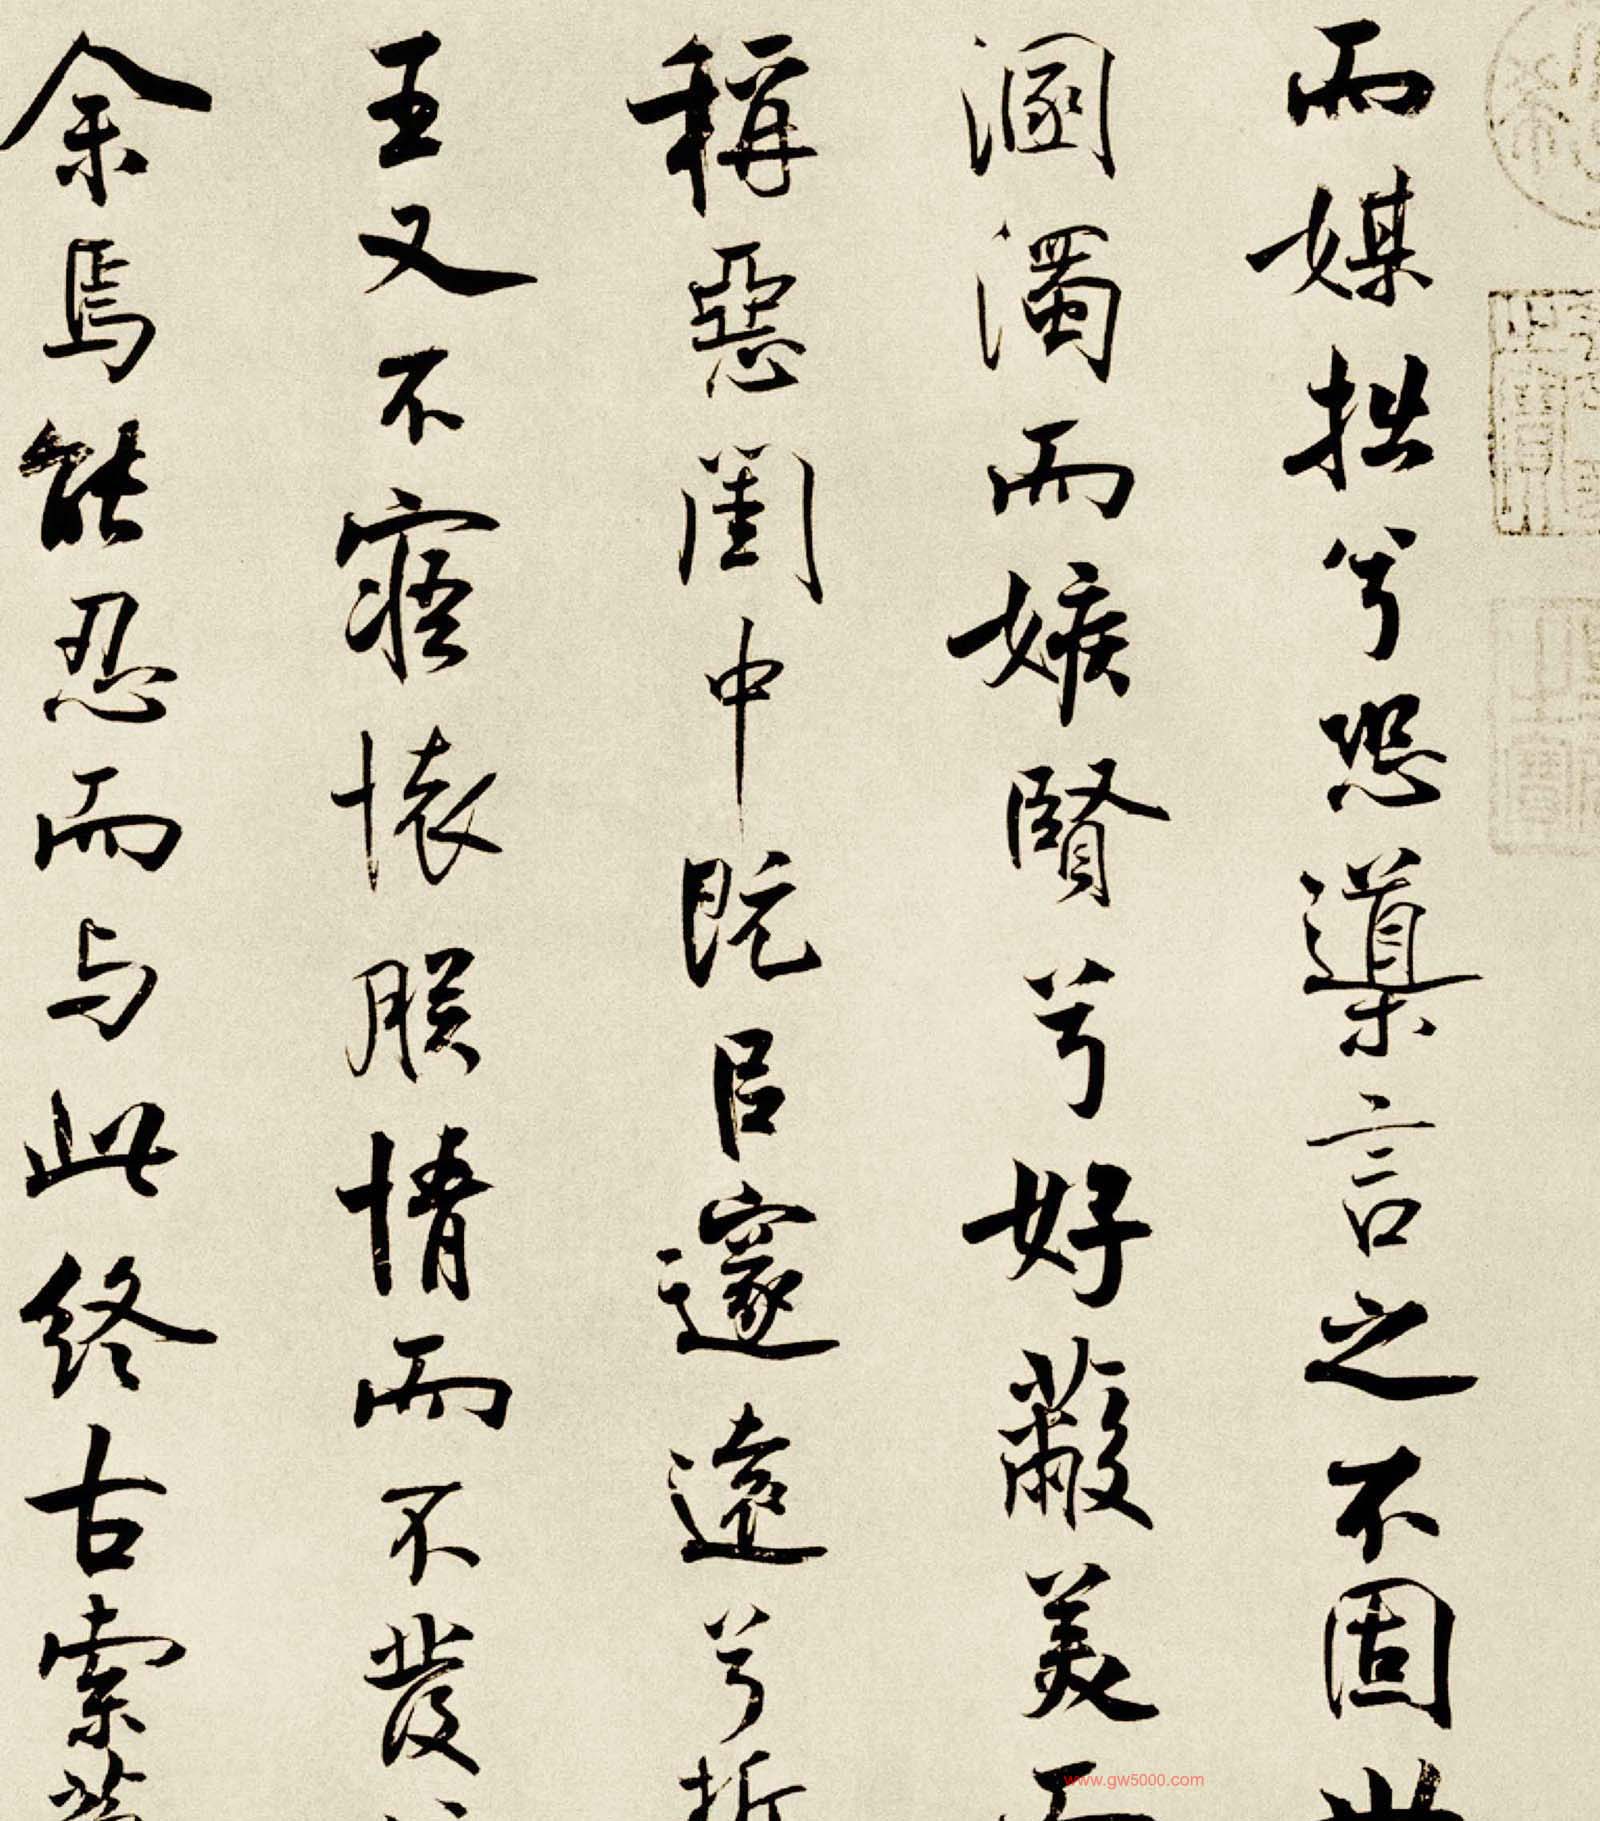 而媒拙兮恐導言之不固世
溷濁而嫉賢兮好蔽美而
稱惡閨中既以邃遠兮哲
王又不寤懷朕情而不發
余焉能忍而与此終古索
www.gw5000.com